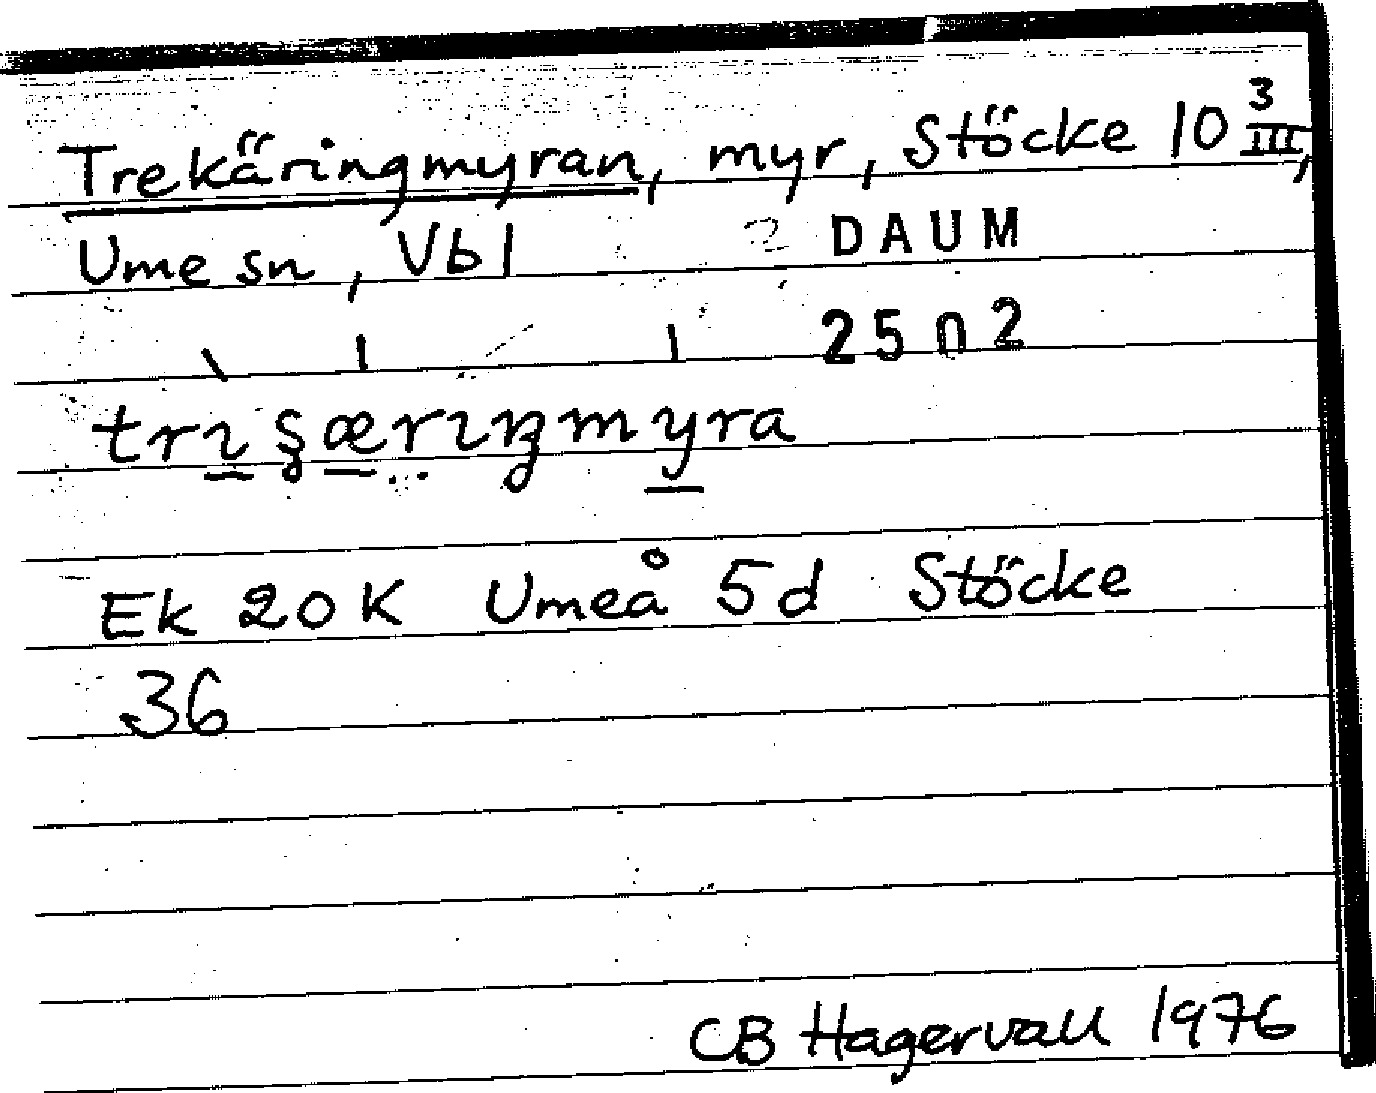 Trekäringmyran, myr, Stöcke 10 3/III,
Ume sn, Vbl
DAUM
2502
Ek 20 K Umeå 5d Stöcke
36
CB Hagervall 1976